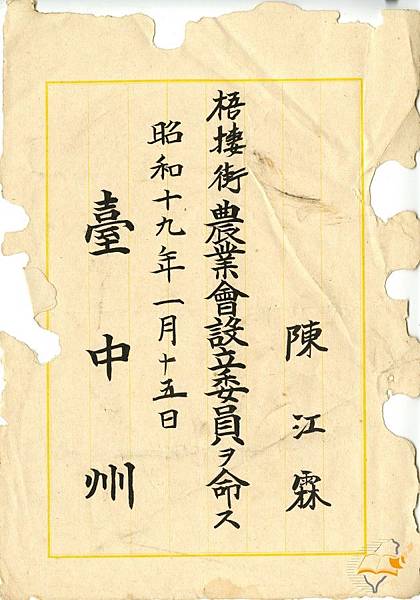 陳江霖
梧棲街農業會設立委員ヲ命ス
昭和十九年一月十五日
臺中州